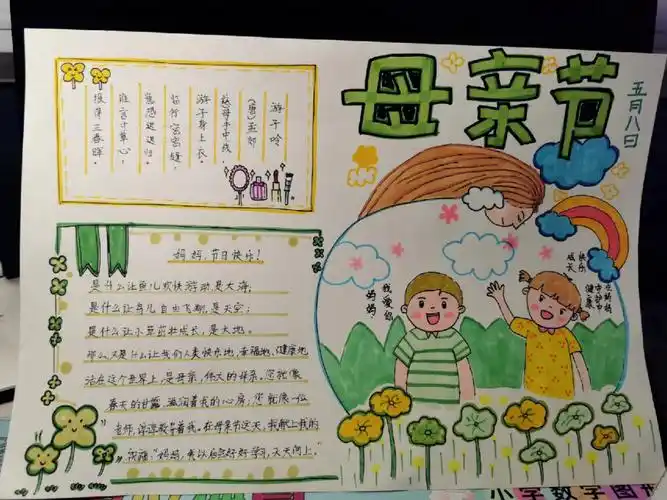 母亲节
五月八日
游子吟
(唐)孟郊
慈母手中线,
游子身上衣。
临行密密缝,
意恐迟迟归。
谁言寸草心,
报得三春晖。
妈妈,节日快乐!
是什么让鱼儿欢快游动,是大海;
是什么让鸟儿自由飞翔,是天空;
是什么让小草茁壮成长,是大地。
那么,又是什么让我们人类快乐地,幸福地,健康地
活在这个世界上,是母亲,伟大的母亲。您就像
春天的甘露,滋润着我的心房,您就像一位
老师,谆谆教导着我。在母亲节这天,我献上我的
祝福:"妈妈,我以后会好好学习,天天向上。"
我爱您
妈妈
在妈妈
健康
快乐
成长
小学数学图